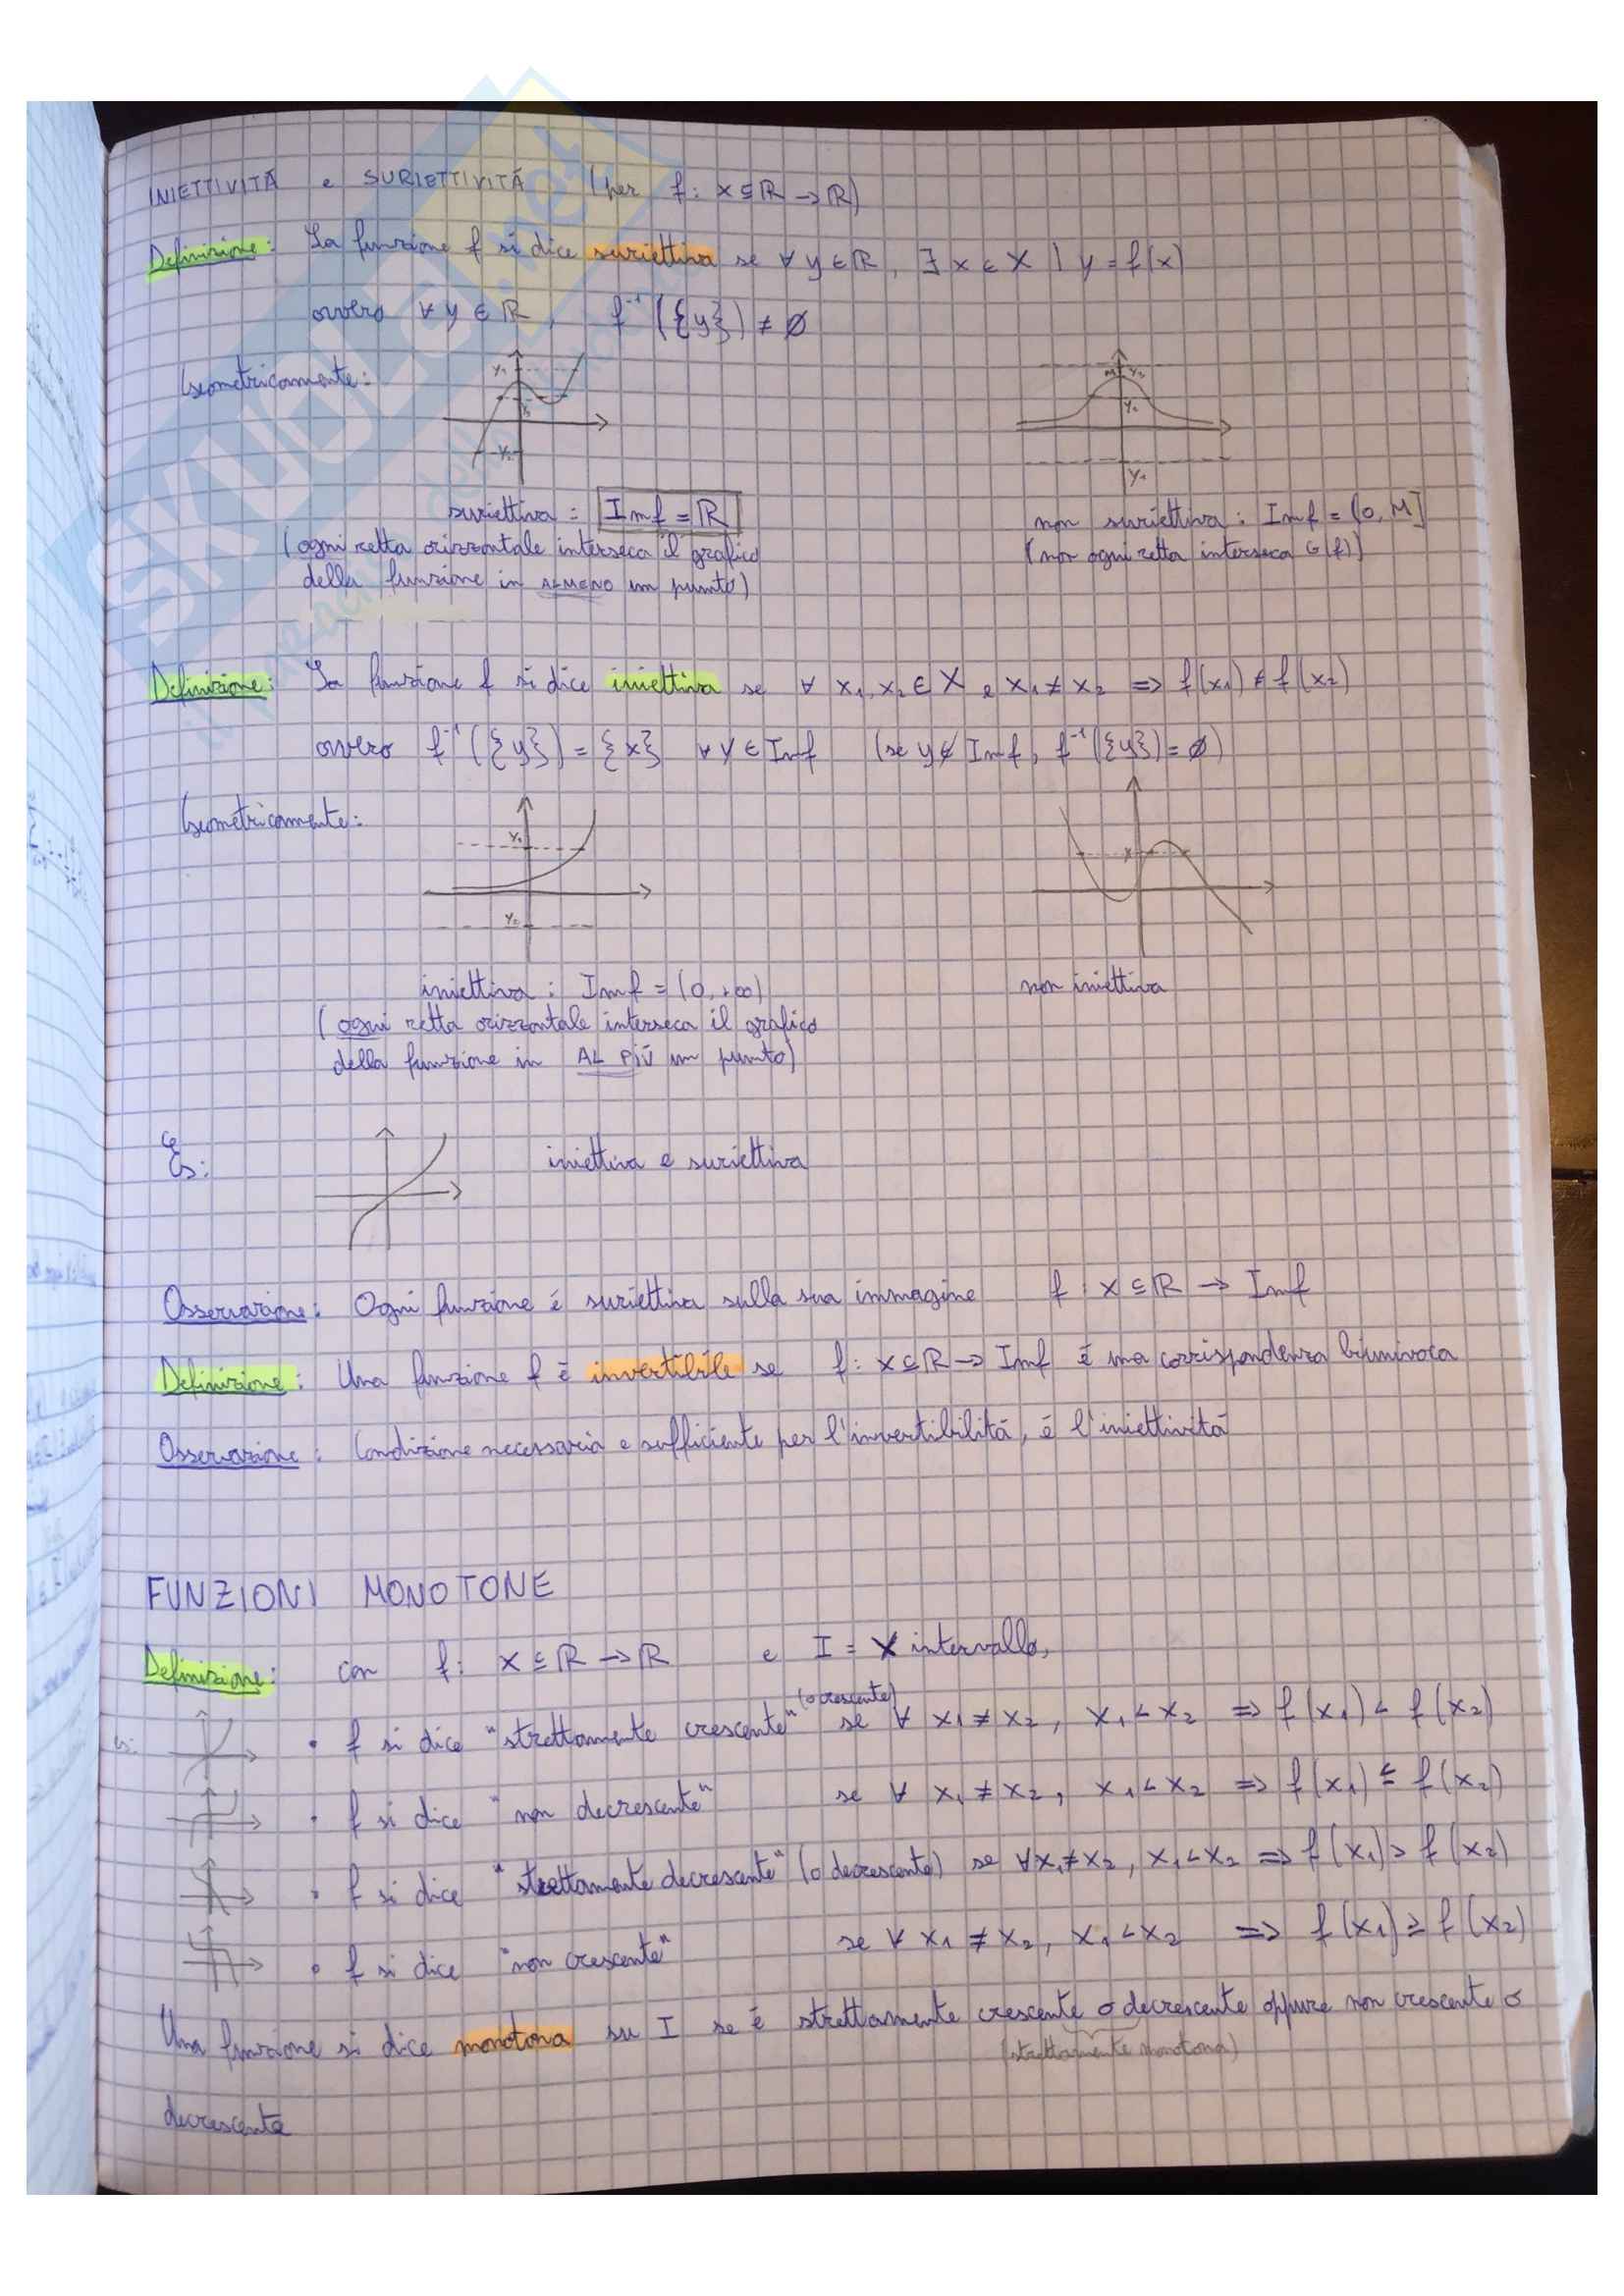 INIETTIVITÀ e SURIETTIVITÀ (per f: X⊆ℝ→ℝ)
Definizione: La funzione f si dice suriettiva se ∀ y∈ℝ, ∃ x∈X | y=f(x)
ovvero ∀ y∈ℝ, f⁻¹({y}) ≠ ∅
Geometricamente:
suriettiva: Imf = ℝ
(ogni retta orizzontale interseca il grafico
della funzione in ALMENO un punto)
non suriettiva: Imf = (0, M]
(non ogni retta interseca G(f))
Definizione: La funzione f si dice iniettiva se ∀ x₁, x₂ ∈ X e x₁ ≠ x₂ => f(x₁) ≠ f(x₂)
ovvero f⁻¹({y}) = {x} ∀ y ∈ Imf (se y∉ Imf, f⁻¹({y}) = ∅)
Geometricamente:
iniettiva: Imf = (0, +∞)
(ogni retta orizzontale interseca il grafico
della funzione in AL PIÙ un punto)
non iniettiva
Es: iniettiva e suriettiva
Osservazione: Ogni funzione è suriettiva sulla sua immagine f: X⊆ℝ → Imf
Definizione: Una funzione f è invertibile se f: X⊆ℝ → Imf è una corrispondenza biunivoca
Osservazione: Condizione necessaria e sufficiente per l'invertibilità, è l'iniettività
FUNZIONI MONOTONE
Definizione: con f: X⊆ℝ→ℝ e I = X intervallo,
Es: • f si dice "strettamente crescente" (o crescente) se ∀ x₁≠x₂, x₁<x₂ => f(x₁) < f(x₂)
• f si dice "non decrescente" se ∀ x₁≠x₂, x₁<x₂ => f(x₁) ≤ f(x₂)
• f si dice "strettamente decrescente" (o decrescente) se ∀x₁≠x₂, x₁<x₂ => f(x₁) > f(x₂)
• f si dice "non crescente" se ∀ x₁≠x₂, x₁<x₂ => f(x₁) ≥ f(x₂)
Una funzione si dice monotona su I se è strettamente crescente o decrescente oppure non crescente o
(strettamente monotona)
decrescente